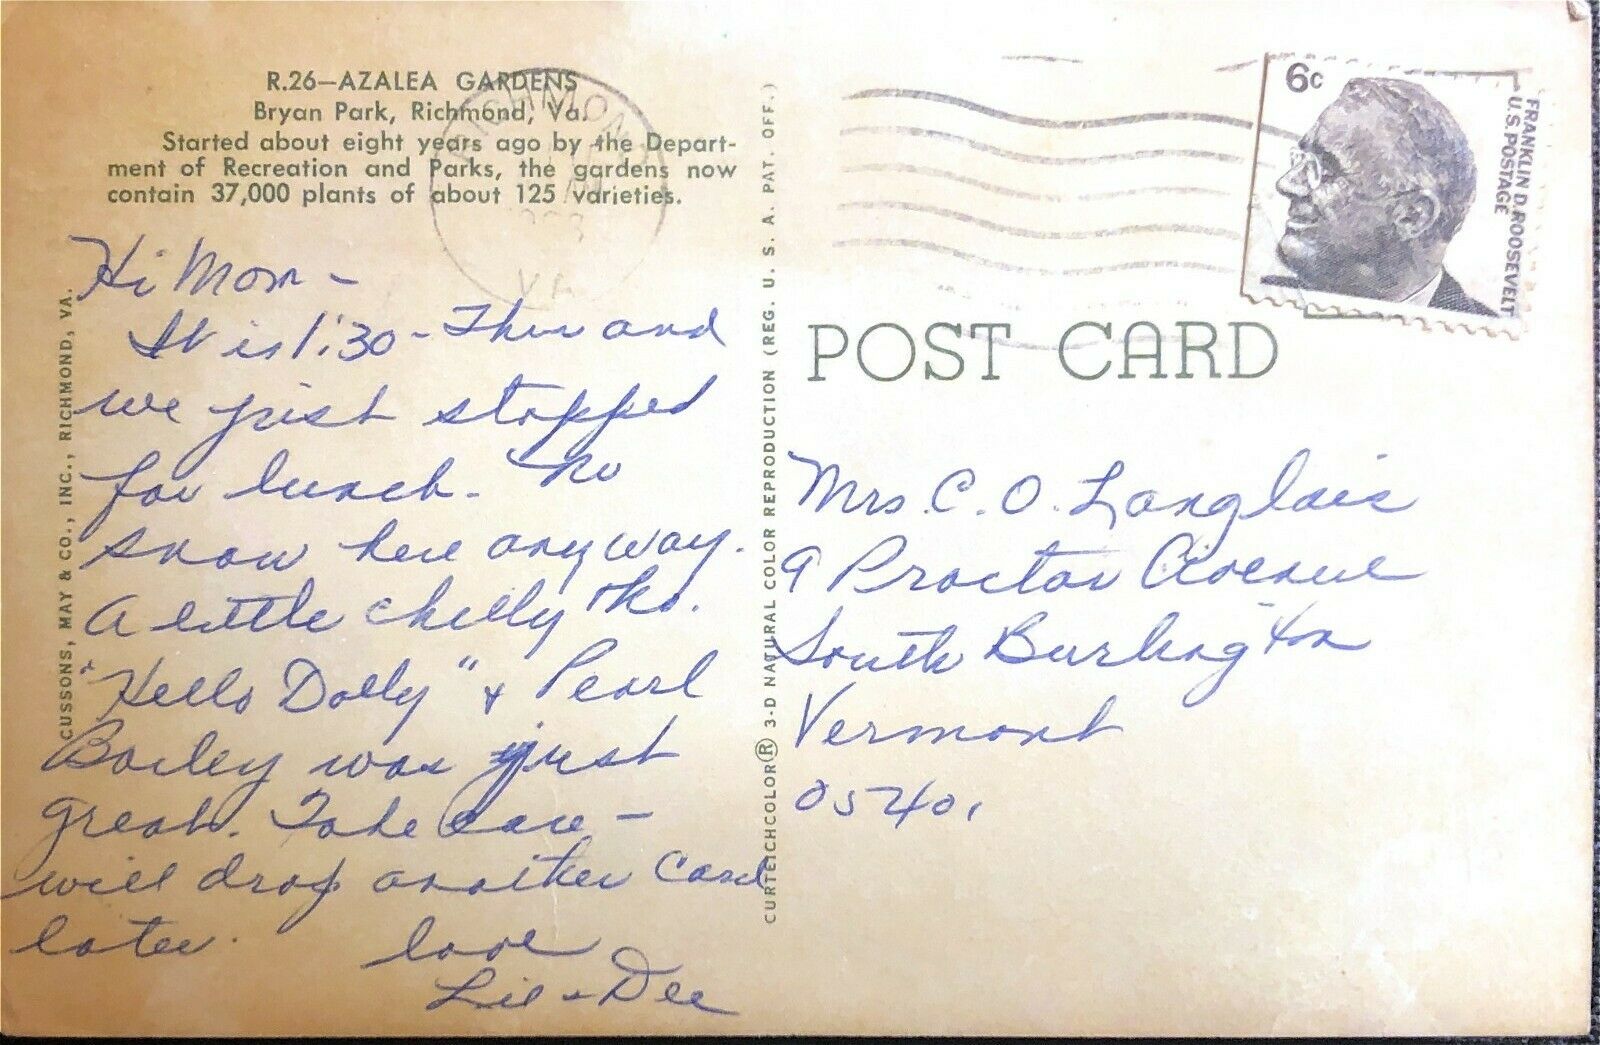 R.26—AZALEA GARDENS
Bryan Park, Richmond, Va.
Started about eight years ago by the Depart-
ment of Recreation and Parks, the gardens now
contain 37,000 plants of about 125 varieties.
Hi Mom -
It is 1:30 - Thur and
we just stopped
for lunch. No
snow here anyway.
A little chilly tho.
"Hello Dolly" & Pearl
Bailey was just
great. Take care -
will drop another card
later.
Love
Lil & Dee
CUSSONS, MAY & CO., INC., RICHMOND, VA.
CURTEICHCOLOR® 3-D NATURAL COLOR REPRODUCTION (REG. U. S. A. PAT. OFF.)
RICHMOND
VA
6c
FRANKLIN D. ROOSEVELT
U.S. POSTAGE
POST CARD
Mrs. C. O. Langlais
9 Proctor Avenue
South Burlington
Vermont
05401